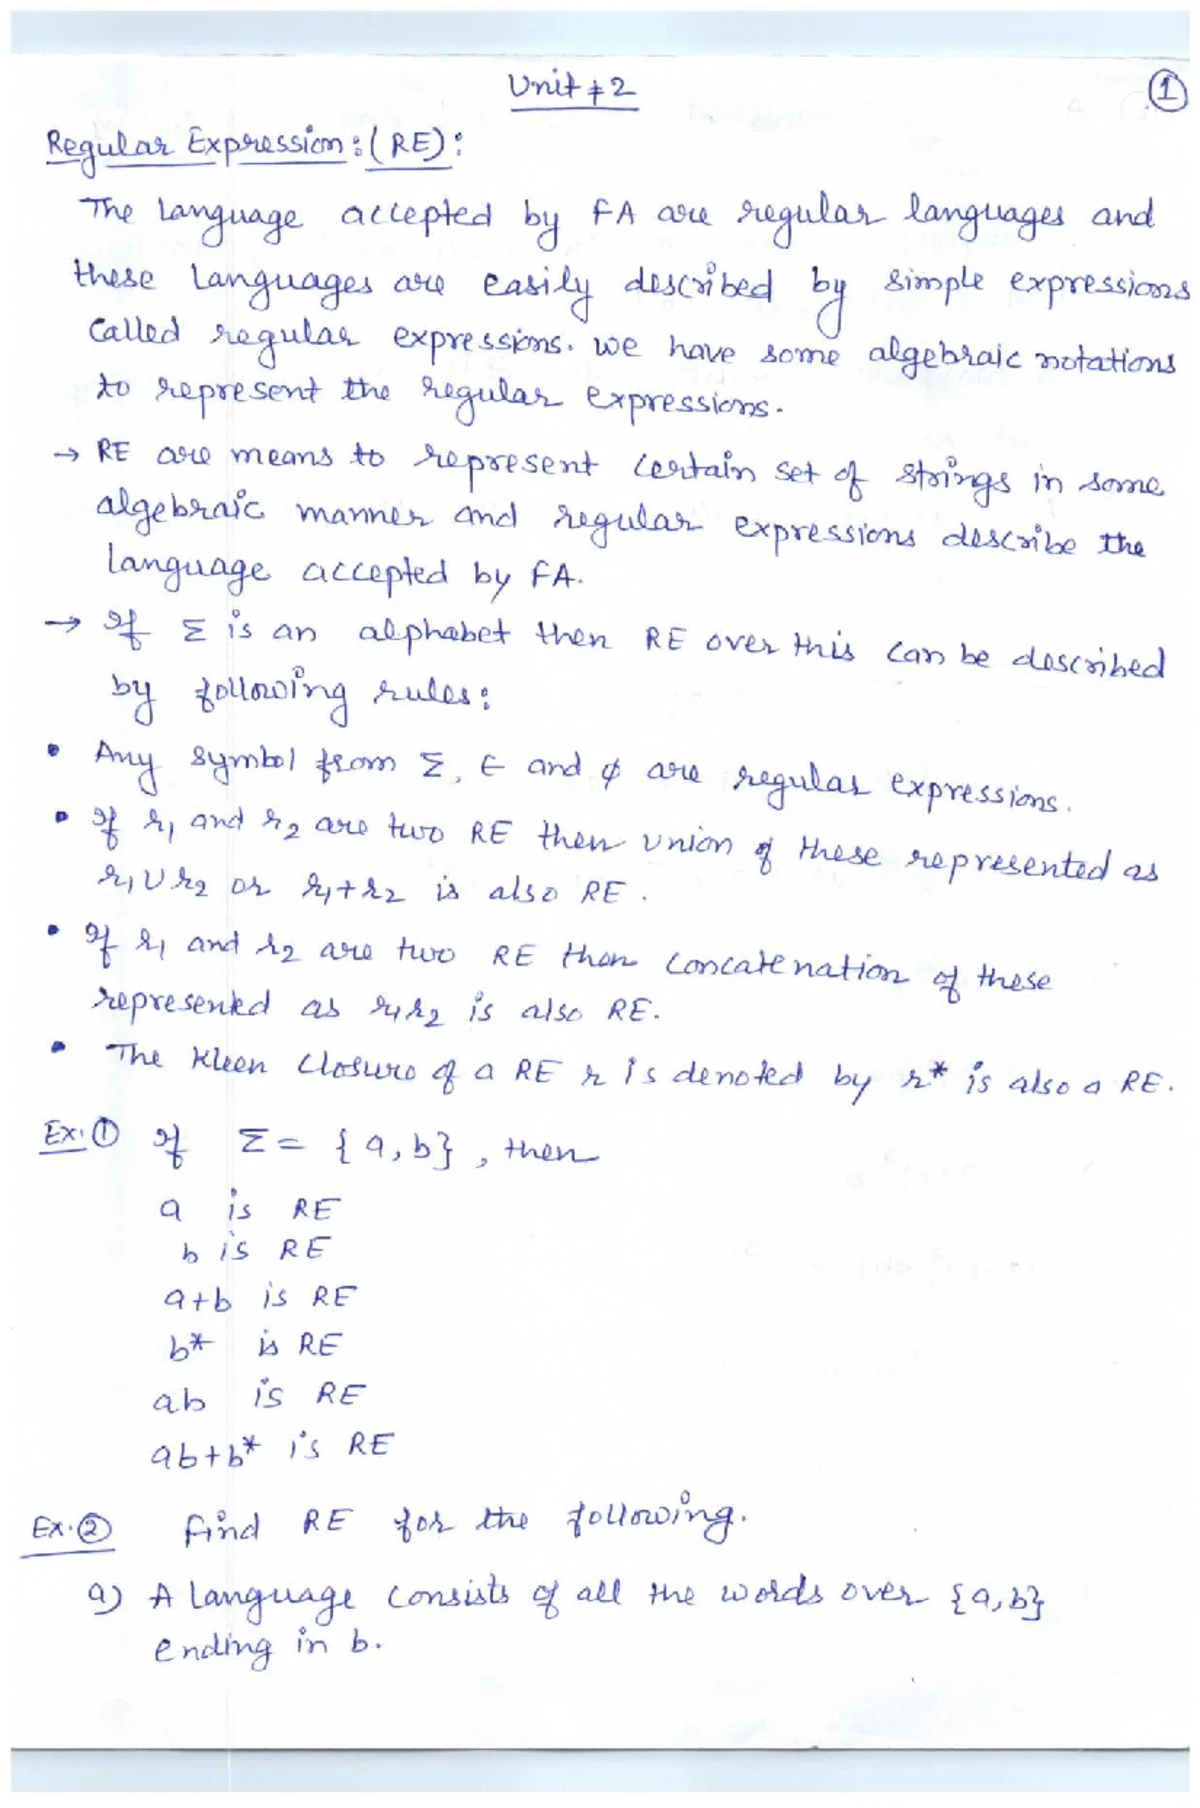 Unit # 2
1
Regular Expression : (RE) :
The language accepted by FA are regular languages and
these languages are easily described by simple expressions
called regular expressions. we have some algebraic notations
to represent the regular expressions.
→ RE are means to represent certain set of strings in some
algebraic manner and regular expressions describe the
language accepted by FA.
→ If Σ is an alphabet then RE over this can be described
by following rules:
• Any symbol from Σ, ∈ and ϕ are regular expressions.
• If r1 and r2 are two RE then union of these represented as
r1 U r2 or r1+r2 is also RE.
• If r1 and r2 are two RE then concatenation of these
represented as r1r2 is also RE.
• The Kleen Closure of a RE r is denoted by r* is also a RE.
Ex. ① If Σ = {a, b}, then
a is RE
b is RE
a+b is RE
b* is RE
ab is RE
ab+b* is RE
Ex. ② Find RE for the following.
a) A language consists of all the words over {a, b}
ending in b.